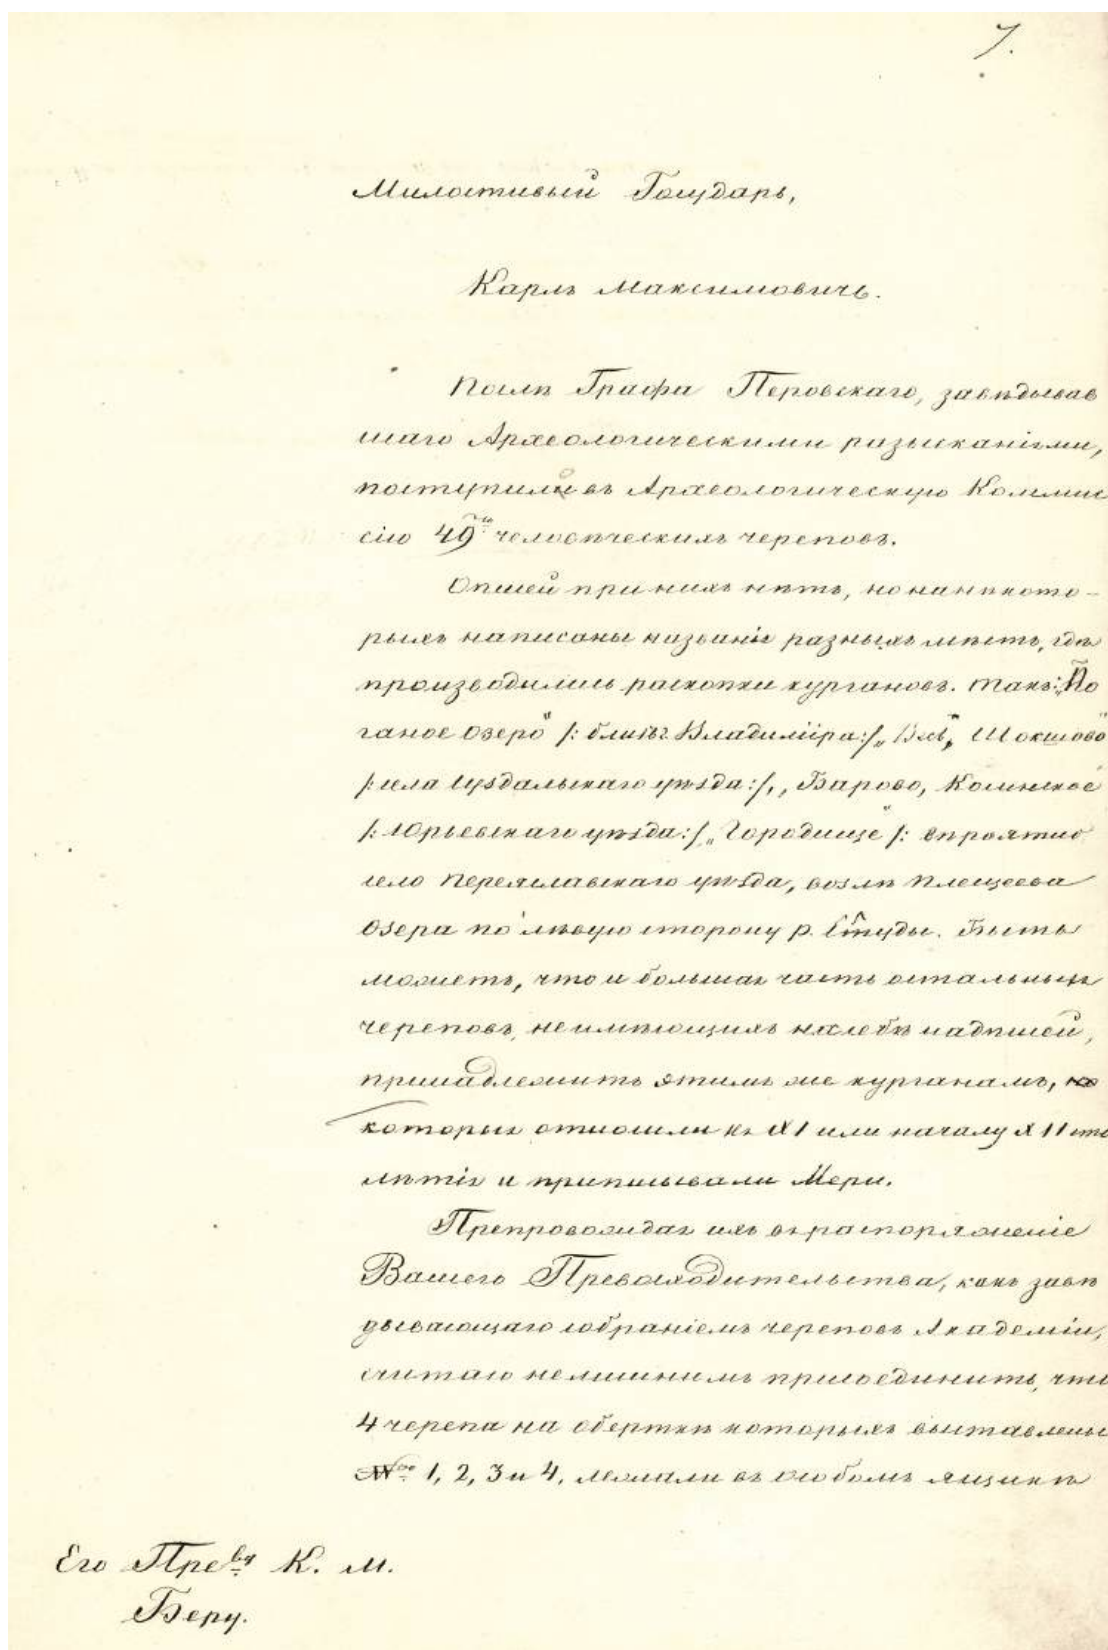 7.
Милостивый Государь,
Карлъ Максимовичъ.
Послѣ Графа Перовскаго, завѣдывав
шаго Археологическими разысканіями,
поступило въ Археологическую Коммис
сію 49 человѣческихъ череповъ.
Описей при нихъ нѣтъ, но на нѣкото-
рыхъ написаны названія разныхъ мѣстъ, гдѣ
производились раскопки кургановъ. Такъ: „По
ганое Озеро" /: близъ Владиміра :/ Шокшово
/: села Суздальскаго уѣзда :/, „Варово,
/: Юрьевскаго уѣзда :/ „Городище" /:
село Переяславскаго уѣзда, возлѣ Плещеева
Озера по лѣвую сторону р. Быть
можетъ, что и большая часть остальныхъ
череповъ, неимѣющихъ на себѣ надписей,
принадлежитъ этимъ же курганамъ,
которые относили къ XI или началу XII сто
лѣтія и приписывали Мери.
Препровождая ихъ въ распоряженіе
Вашего Превосходительства, какъ завѣ
дывающаго собраніемъ череповъ Академіи,
считаю нелишнимъ присоединить, что
4 черепа на оберткѣ которыхъ выставлены
№ 1, 2, 3 и 4, лежали въ особомъ ящикѣ
Его Прев-ву К. М.
Беру.